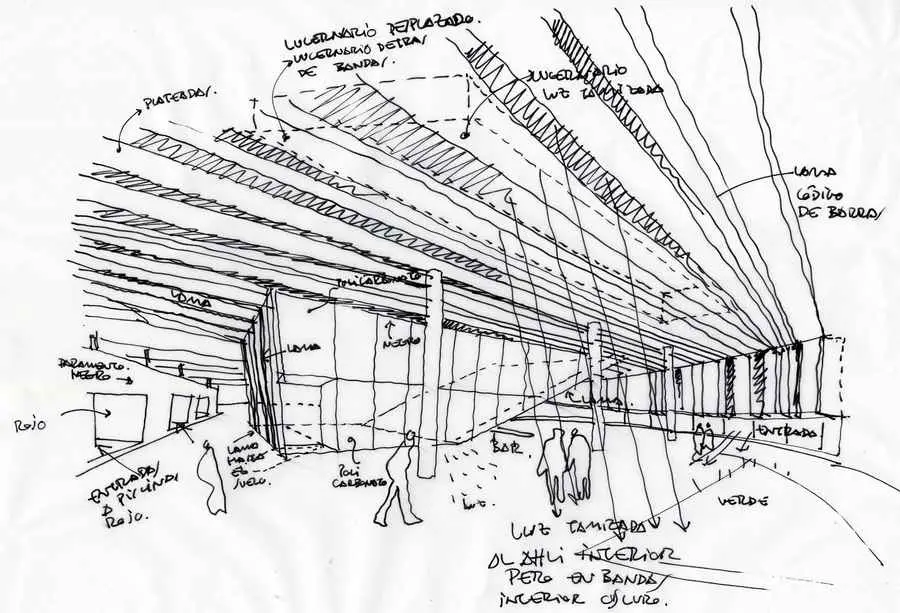 LUCERNARIO DESPLAZADO.
LUCERNARIO DETRAS
DE BANDAS.
LUCERNARIO
LUZ TAMIZADA
PLATEADAS.
LAMA
CÓDIGO
DE BARRAS
POLICARBONATO
LAMA
NEGRO
LAMA
PARAMENTO
NEGRO
LAMA
ROJO
ENTRADA
BAR.
LAMA
HASTA
EL
SUELO.
POLI
CARBONATO
ENTRADAS
A PISCINAS
ROJO.
LUZ.
VERDE
LUZ TAMIZADA
AL INTERIOR
PERO EN BANDAS
INTERIOR OSCURO.